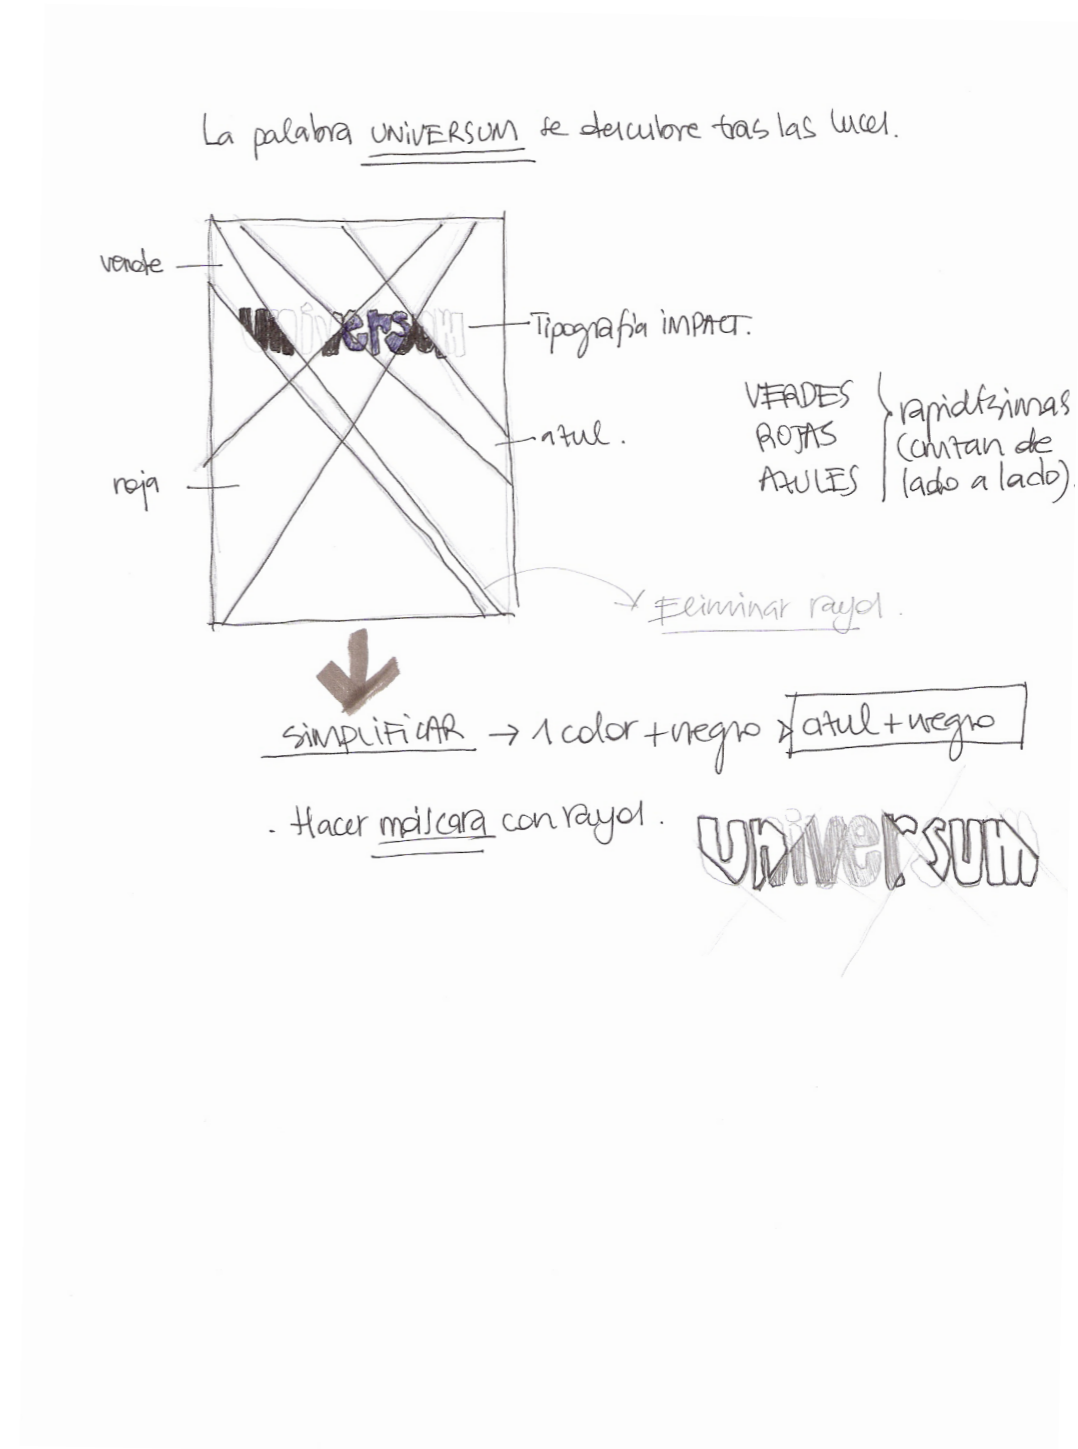 La palabra UNIVERSUM se descubre tras las luces.
verde
universum
Tipografía IMPACT.
VERDES
ROJAS
AZULES
rapidísimas
(contan de
lado a lado).
azul.
roja
Eliminar rayos.
SIMPLIFICAR → 1 color + negro > azul + negro
. Hacer máscara con rayos.
universum